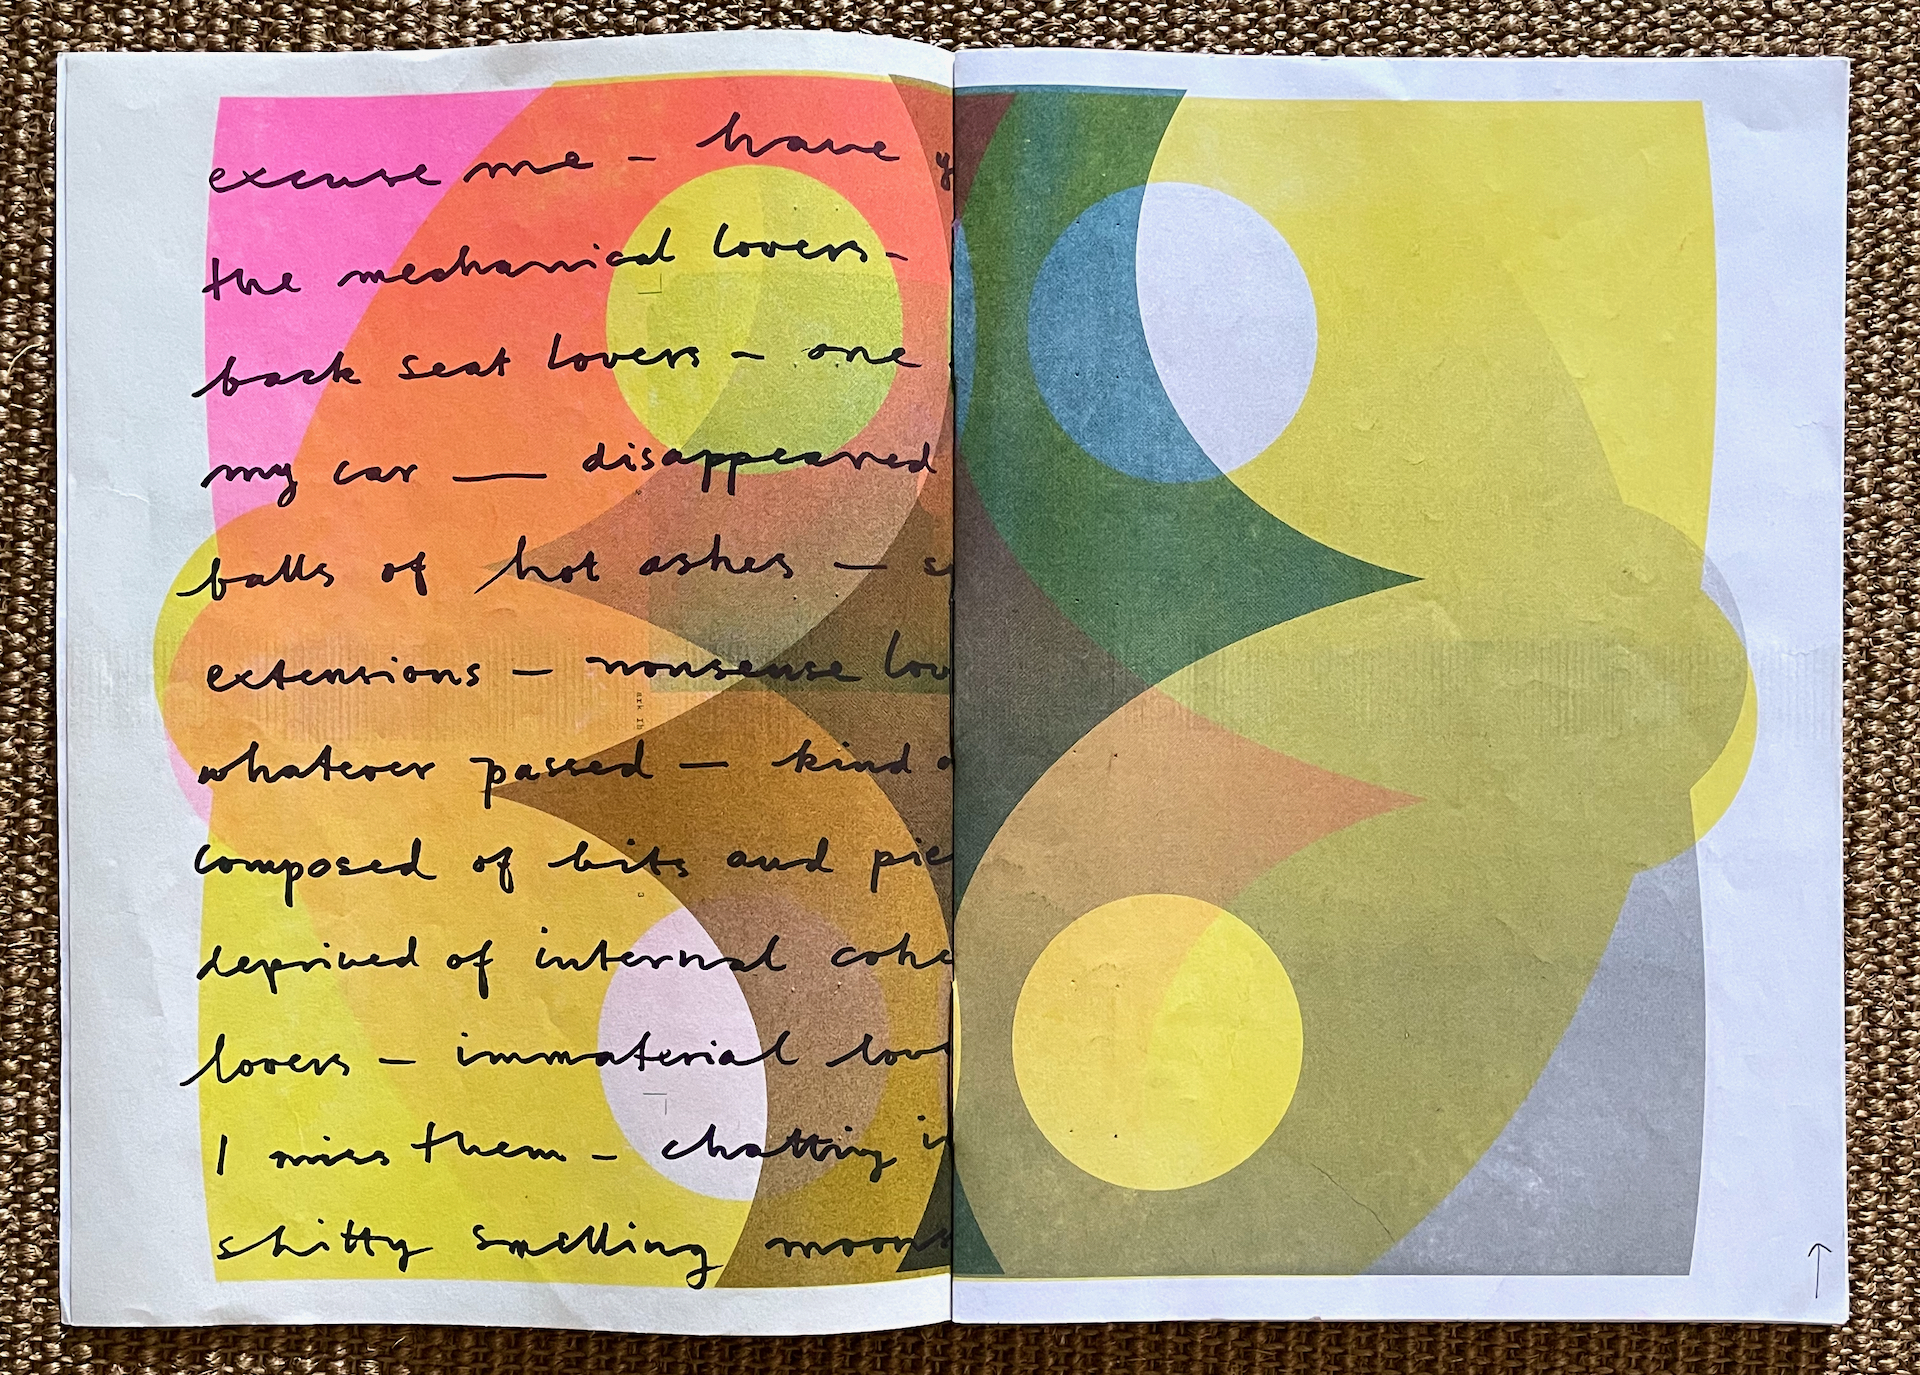 excuse me — have y
the mechanical lovers-
back seat lovers — one
my car — disappeared
balls of hot ashes — s
extensions — nonsense lov
whatever passed — kind o
composed of bits and pie
deprived of internal cohe
lovers — immaterial lov
I miss them — chatting i
shitty smelling moons